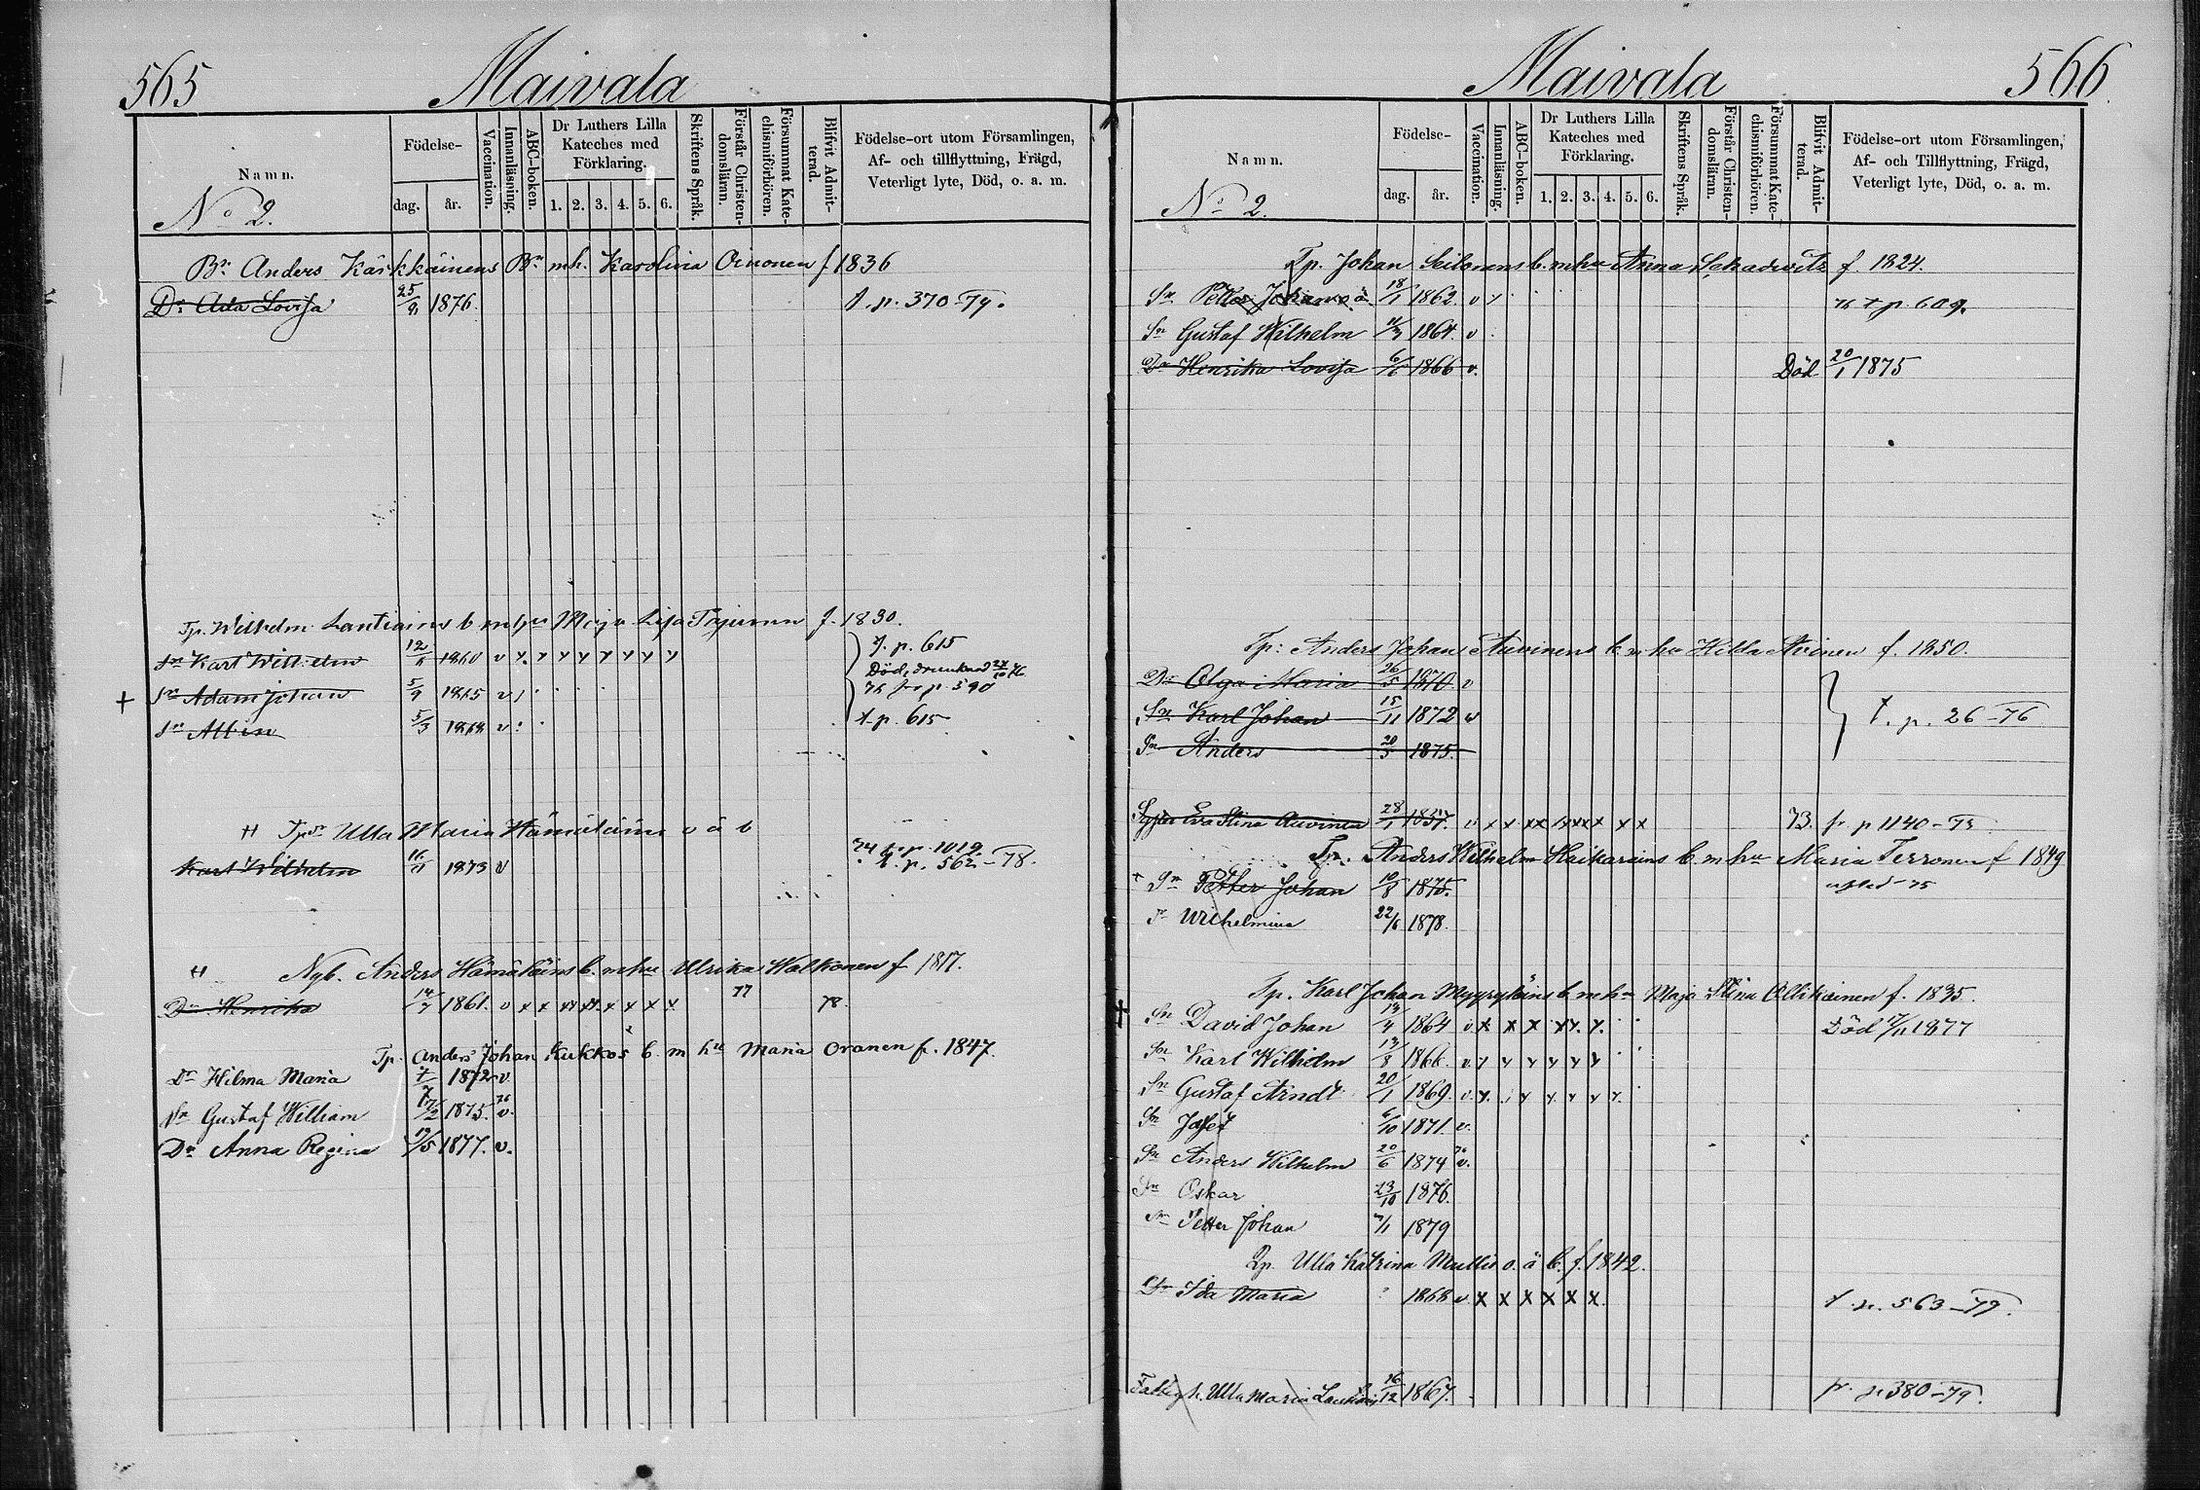 565 Maivala
Namn.
N:o 2.
Födelse-
dag. år.
Vaccination.
Innanläsning.
ABC-boken.
Dr Luthers Lilla Kateches med Förklaring.
1. 2. 3. 4. 5. 6.
Skriftens Språk.
Förstår Christendomsläran.
Försummat Katechismiförhören.
Blifvit Admitterad.
Födelse-ort utom Församlingen,
Af- och tillflyttning, Frägd,
Veterligt lyte, Död, o. a. m.
Bn Anders Kärkkäinens Bn m.h. Karolina Oinonen f 1836
Dr Ada Lovisa 25/9 1876. t. p. 370-79.
Tp. Wilhelm Lantiains b m hu Maja Lisa f. 1830.
Sn Karl Wilhelm 12/5 1860 v t. p. 615
Död, drunknad
+ Sn Adam Johan 5/9 1865 v p. 590
Sn Albin 5/3 1868 v t. p. 615
H Ulla Maria Hämäläins o ä b
74 fr p. 1019.
Karl Wilhelm 16/11 1873 v t. p. 562-78.
H Nyb. Anders Hämäläins b. m hu Ulrika Walkonen f 1817.
Dr Henrika 14/7 1861. v x x 77 78.
Tp. Anders Johan Kukkos b. m hu Maria Oranen f. 1847.
Dr Hilma Maria 1872 v
Sn Gustaf William 17/2 1875. v. 76
Dr Anna Regina 19/5 1877. v.
566
Maivala
Namn.
N:o 2.
Födelse-
dag. år.
Vaccination.
Innanläsning.
ABC-boken.
Dr Luthers Lilla Kateches med Förklaring.
1. 2. 3. 4. 5. 6.
Skriftens Språk.
Förstår Christendomsläran.
Försummat Katechismiförhören.
Blifvit Admitterad.
Födelse-ort utom Församlingen,
Af- och Tillflyttning, Frägd,
Veterligt lyte, Död, o. a. m.
Johan Seilonens b. m hu Anna Schadewitz f. 1824.
Sn Petter Johannes 18/1 1862. v 76 t p. 609.
Sn Gustaf Wilhelm 11/3 1864. v
Dr Henrika Lovisa 6/6 1866 v. Död 20/1 1875
Tp: Anders Johans Auvinens b. m hu Hilda f. 1850.
Dr Olga Maria 26/5 1870. v
Sn Karl Johan 15/11 1872 v t. p. 26-76
Sn Anders 20/5 1875.
Syster Eva Stina Auvinen 28/1 1857. v x x xx xxxx x x 73. fr p 1140-73
Tp. Anders Wilhelm Haikarains b. m hu Maria Terronen f 1849
+ Sn Petter Johan 10/8 1875. afled -75
Wilhelmina 22/6 1878.
Tp. Karl Johan Myyryläins b. m hu Maja Stina Ollikainen f. 1835.
+ Sn David Johan 13/4 1864 v x x x Död 17/11 1877
Sn Karl Wilhelm 13/8 1866. v
Sn Gustaf Arndt 20/1 1869. v
Sn Josef 6/10 1871. v.
Sn Anders Wilhelm 20/6 1874 v.
Sn Oskar 23/10 1876.
Sn Petter Johan 7/1 1879
Ulla Katrina o. ä b. f. 1842.
Dr Ida Maria 1868 v x x x x x x t. p. 563-79.
Fattigh. Ulla Maria 16/12 1867. fr. p 380-79.